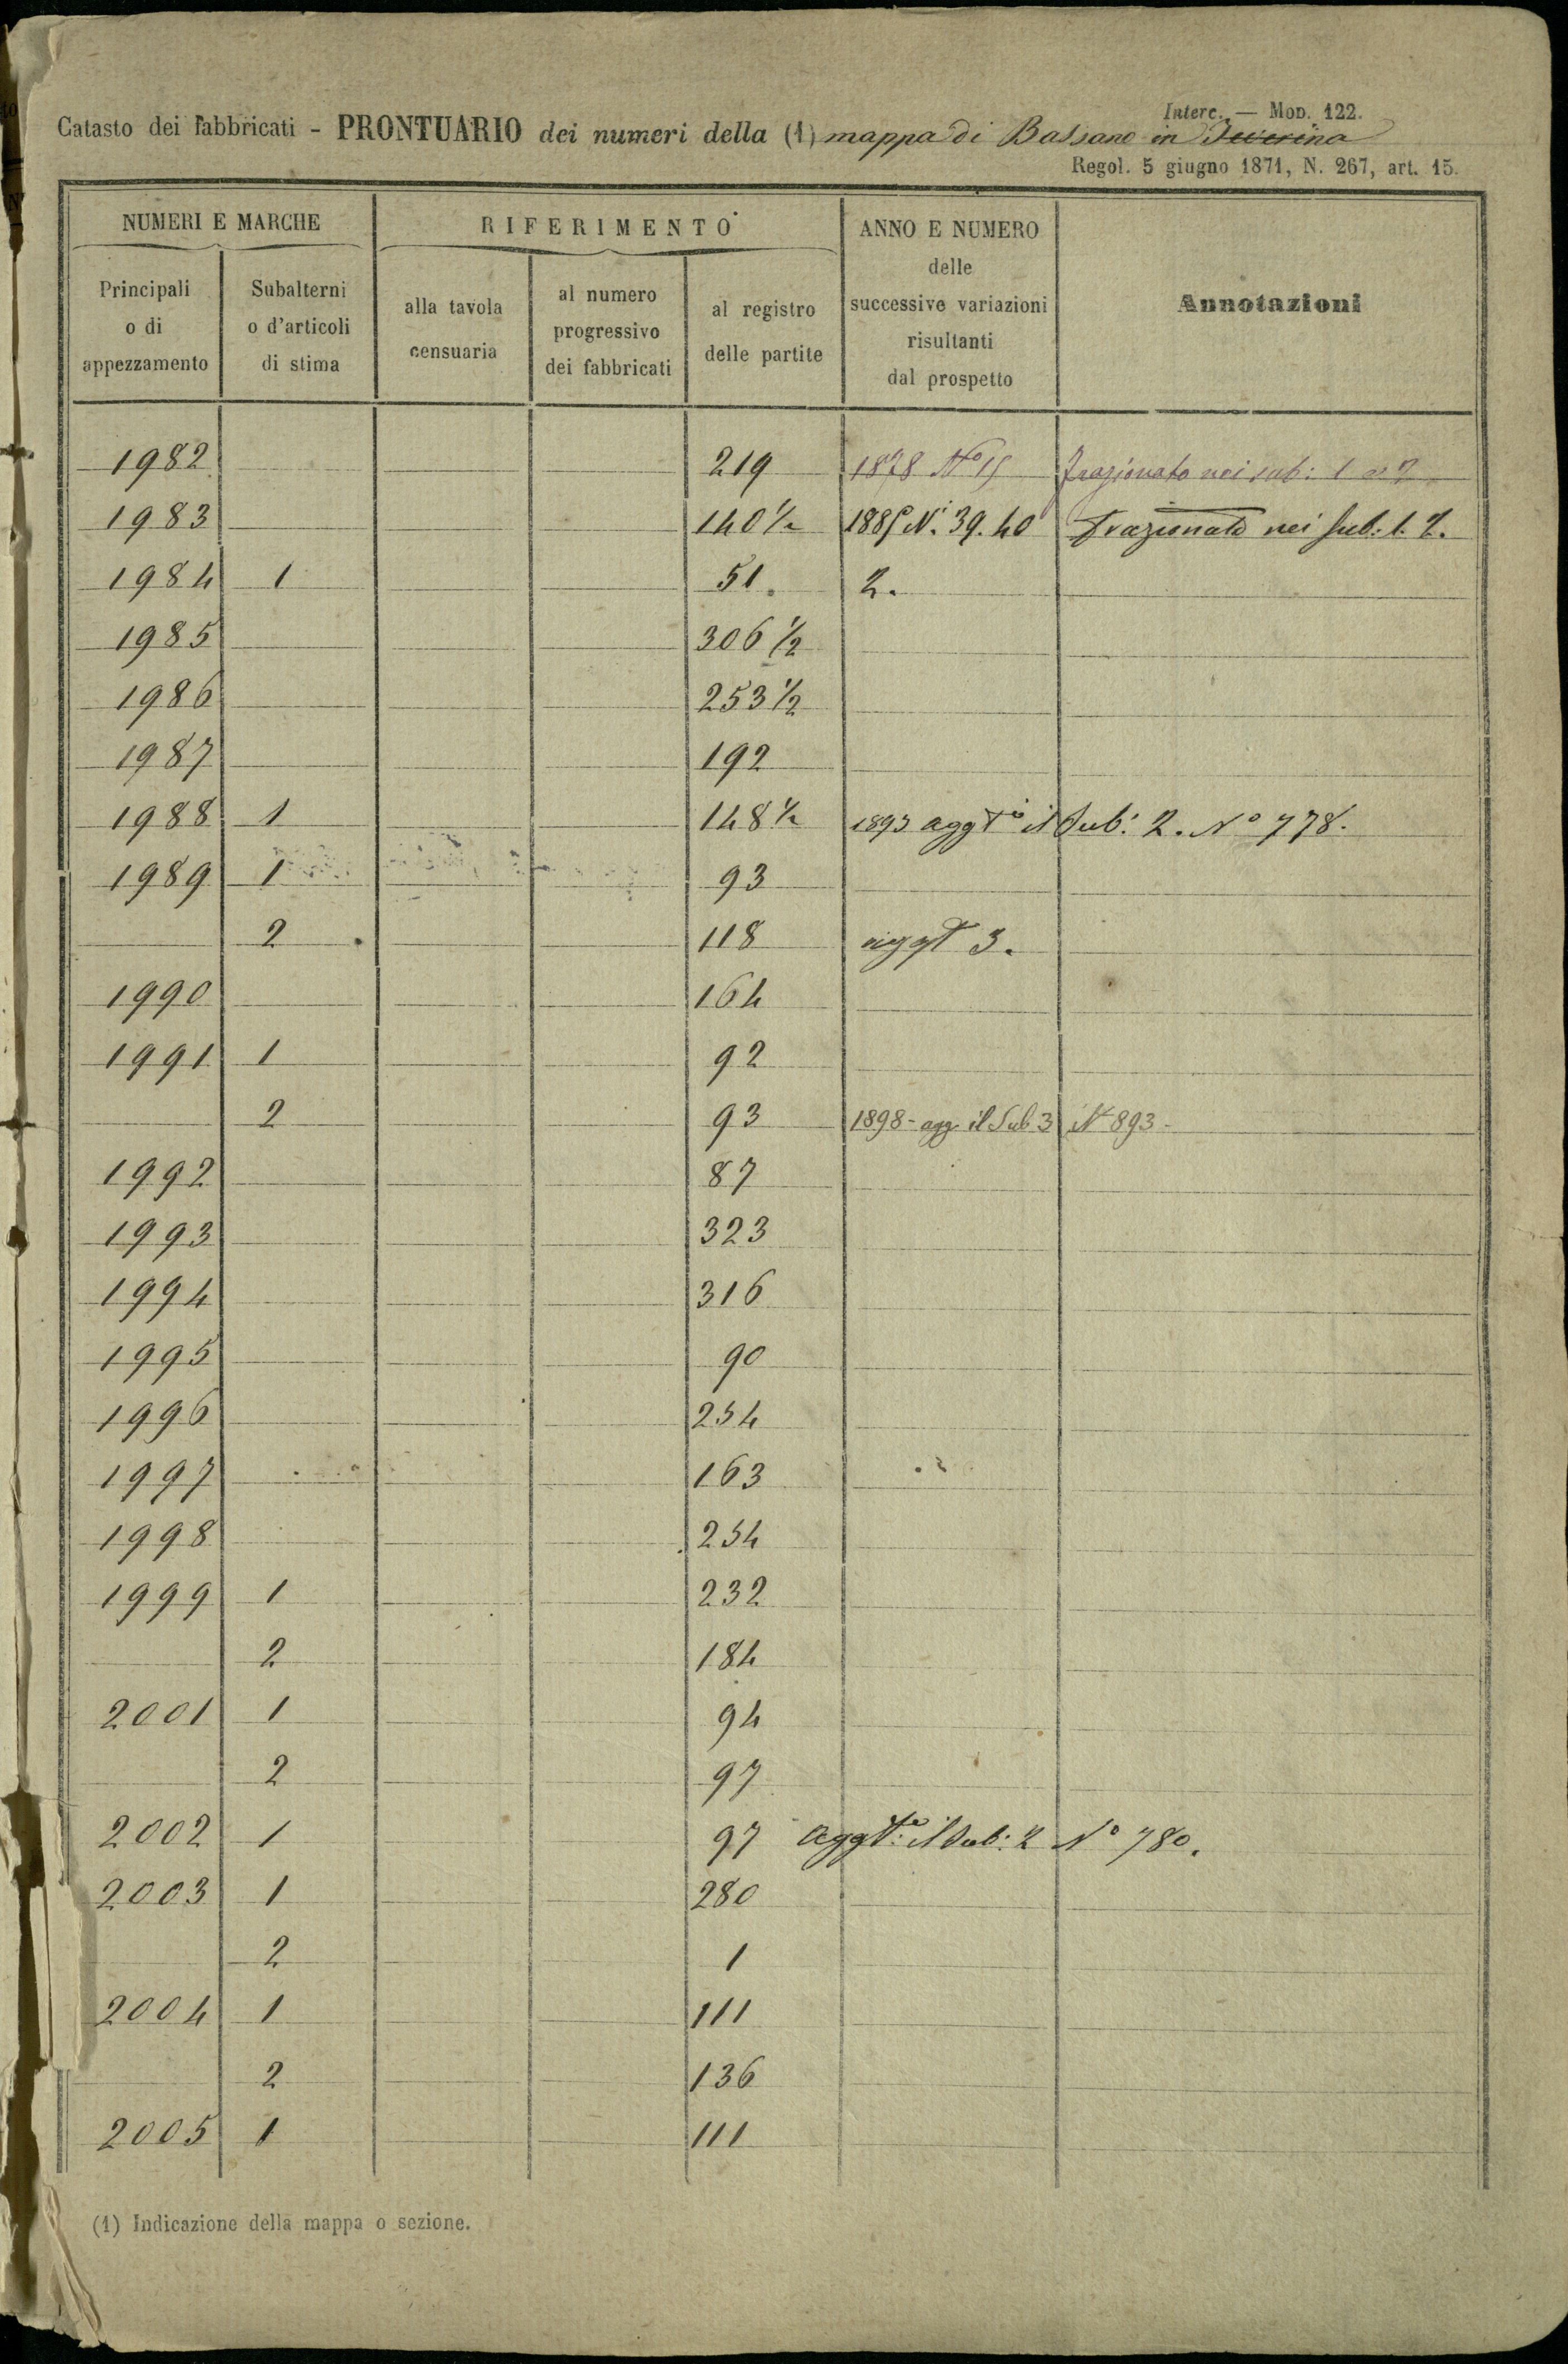 Interc. — Mod. 122.
Catasto dei fabbricati - PRONTUARIO dei numeri della (1) mappa di Bassano in Teverina
Regol. 5 giugno 1871, N. 267, art. 15.
NUMERI E MARCHE RIFERIMENTO ANNO E NUMERO delle successive variazioni risultanti dal prospetto Annotazioni
Principali o di appezzamento Subalterni o d'articoli di stima alla tavola censuaria al numero progressivo dei fabbricati al registro delle partite
1982 219 1878 No 15 Frazionato nei sub: 1 e 2
1983 140 1/2 1885 N. 39. 40 Frazionato nei Sub: 1. 2.
1984 1 51. 2.
1985 306 1/2
1986 253 1/2
1987 192
1988 1 148 1/2 1893 aggto il Sub: 2. No 778.
1989 1 93
2 118 aggt 3.
1990 164
1991 1 92
2 93 1898 - agg il Sub 3 No 893 -
1992 87
1993 323
1994 316
1995 90
1996 254
1997 163
1998 254
1999 1 232
2 184
2001 1 94
2 97
2002 1 97 aggto: il Sub: 2 No 780.
2003 1 280
2 1
2004 1 111
2 136
2005 1 111
(1) Indicazione della mappa o sezione.